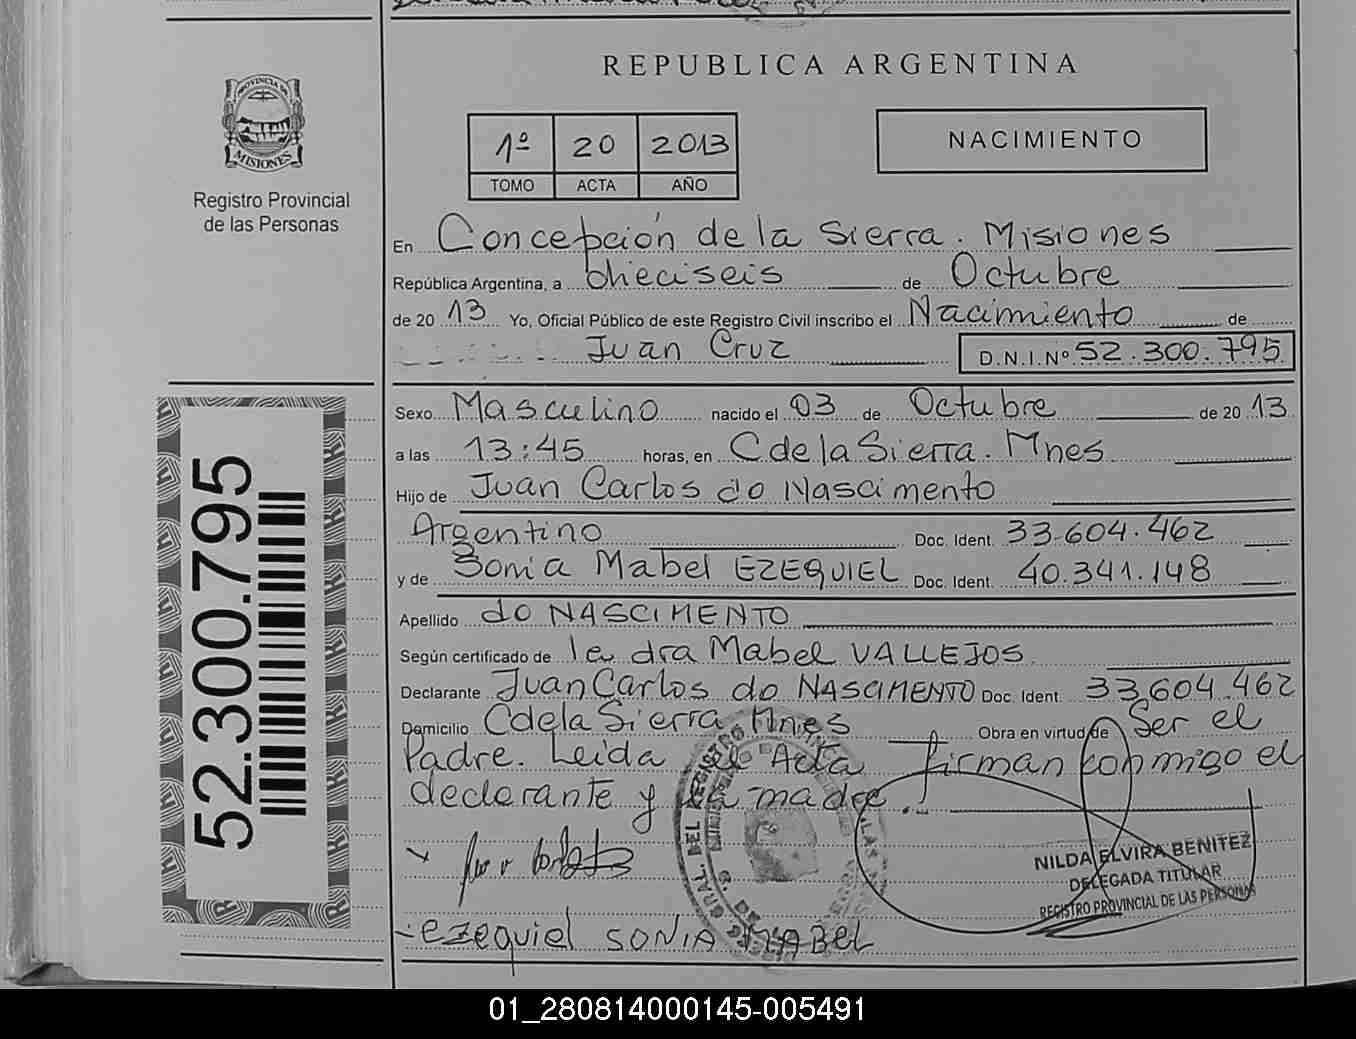 REPUBLICA ARGENTINA
PROVINCIA DE
MISIONES
Registro Provincial
de las Personas
1º 20 2013
TOMO ACTA AÑO
NACIMIENTO
En Concepción de la Sierra. Misiones
República Argentina, a dieciseis de Octubre
de 2013 Yo, Oficial Público de este Registro Civil inscribo el Nacimiento de
Juan Cruz D.N.I.Nº 52.300.795
Sexo Masculino nacido el 03 de Octubre de 2013
a las 13:45 horas, en C de la Sierra. Mnes
Hijo de Juan Carlos do Nascimento
Argentino Doc. Ident. 33.604.462
y de Sonia Mabel EZEQUIEL Doc. Ident. 40.341.148
Apellido do NASCIMENTO
Según certificado de la dra Mabel VALLEJOS
Declarante Juan Carlos do NASCIMENTO Doc. Ident. 33.604.462
Domicilio C de la Sierra Mnes Obra en virtud de Ser el
Padre. Leida el Acta firman conmigo el
declarante y la madre.
NILDA ELVIRA BENITEZ
DELEGADA TITULAR
REGISTRO PROVINCIAL DE LAS PERSONAS
ezequiel SONIA MABEL
52.300.795
01_280814000145-005491